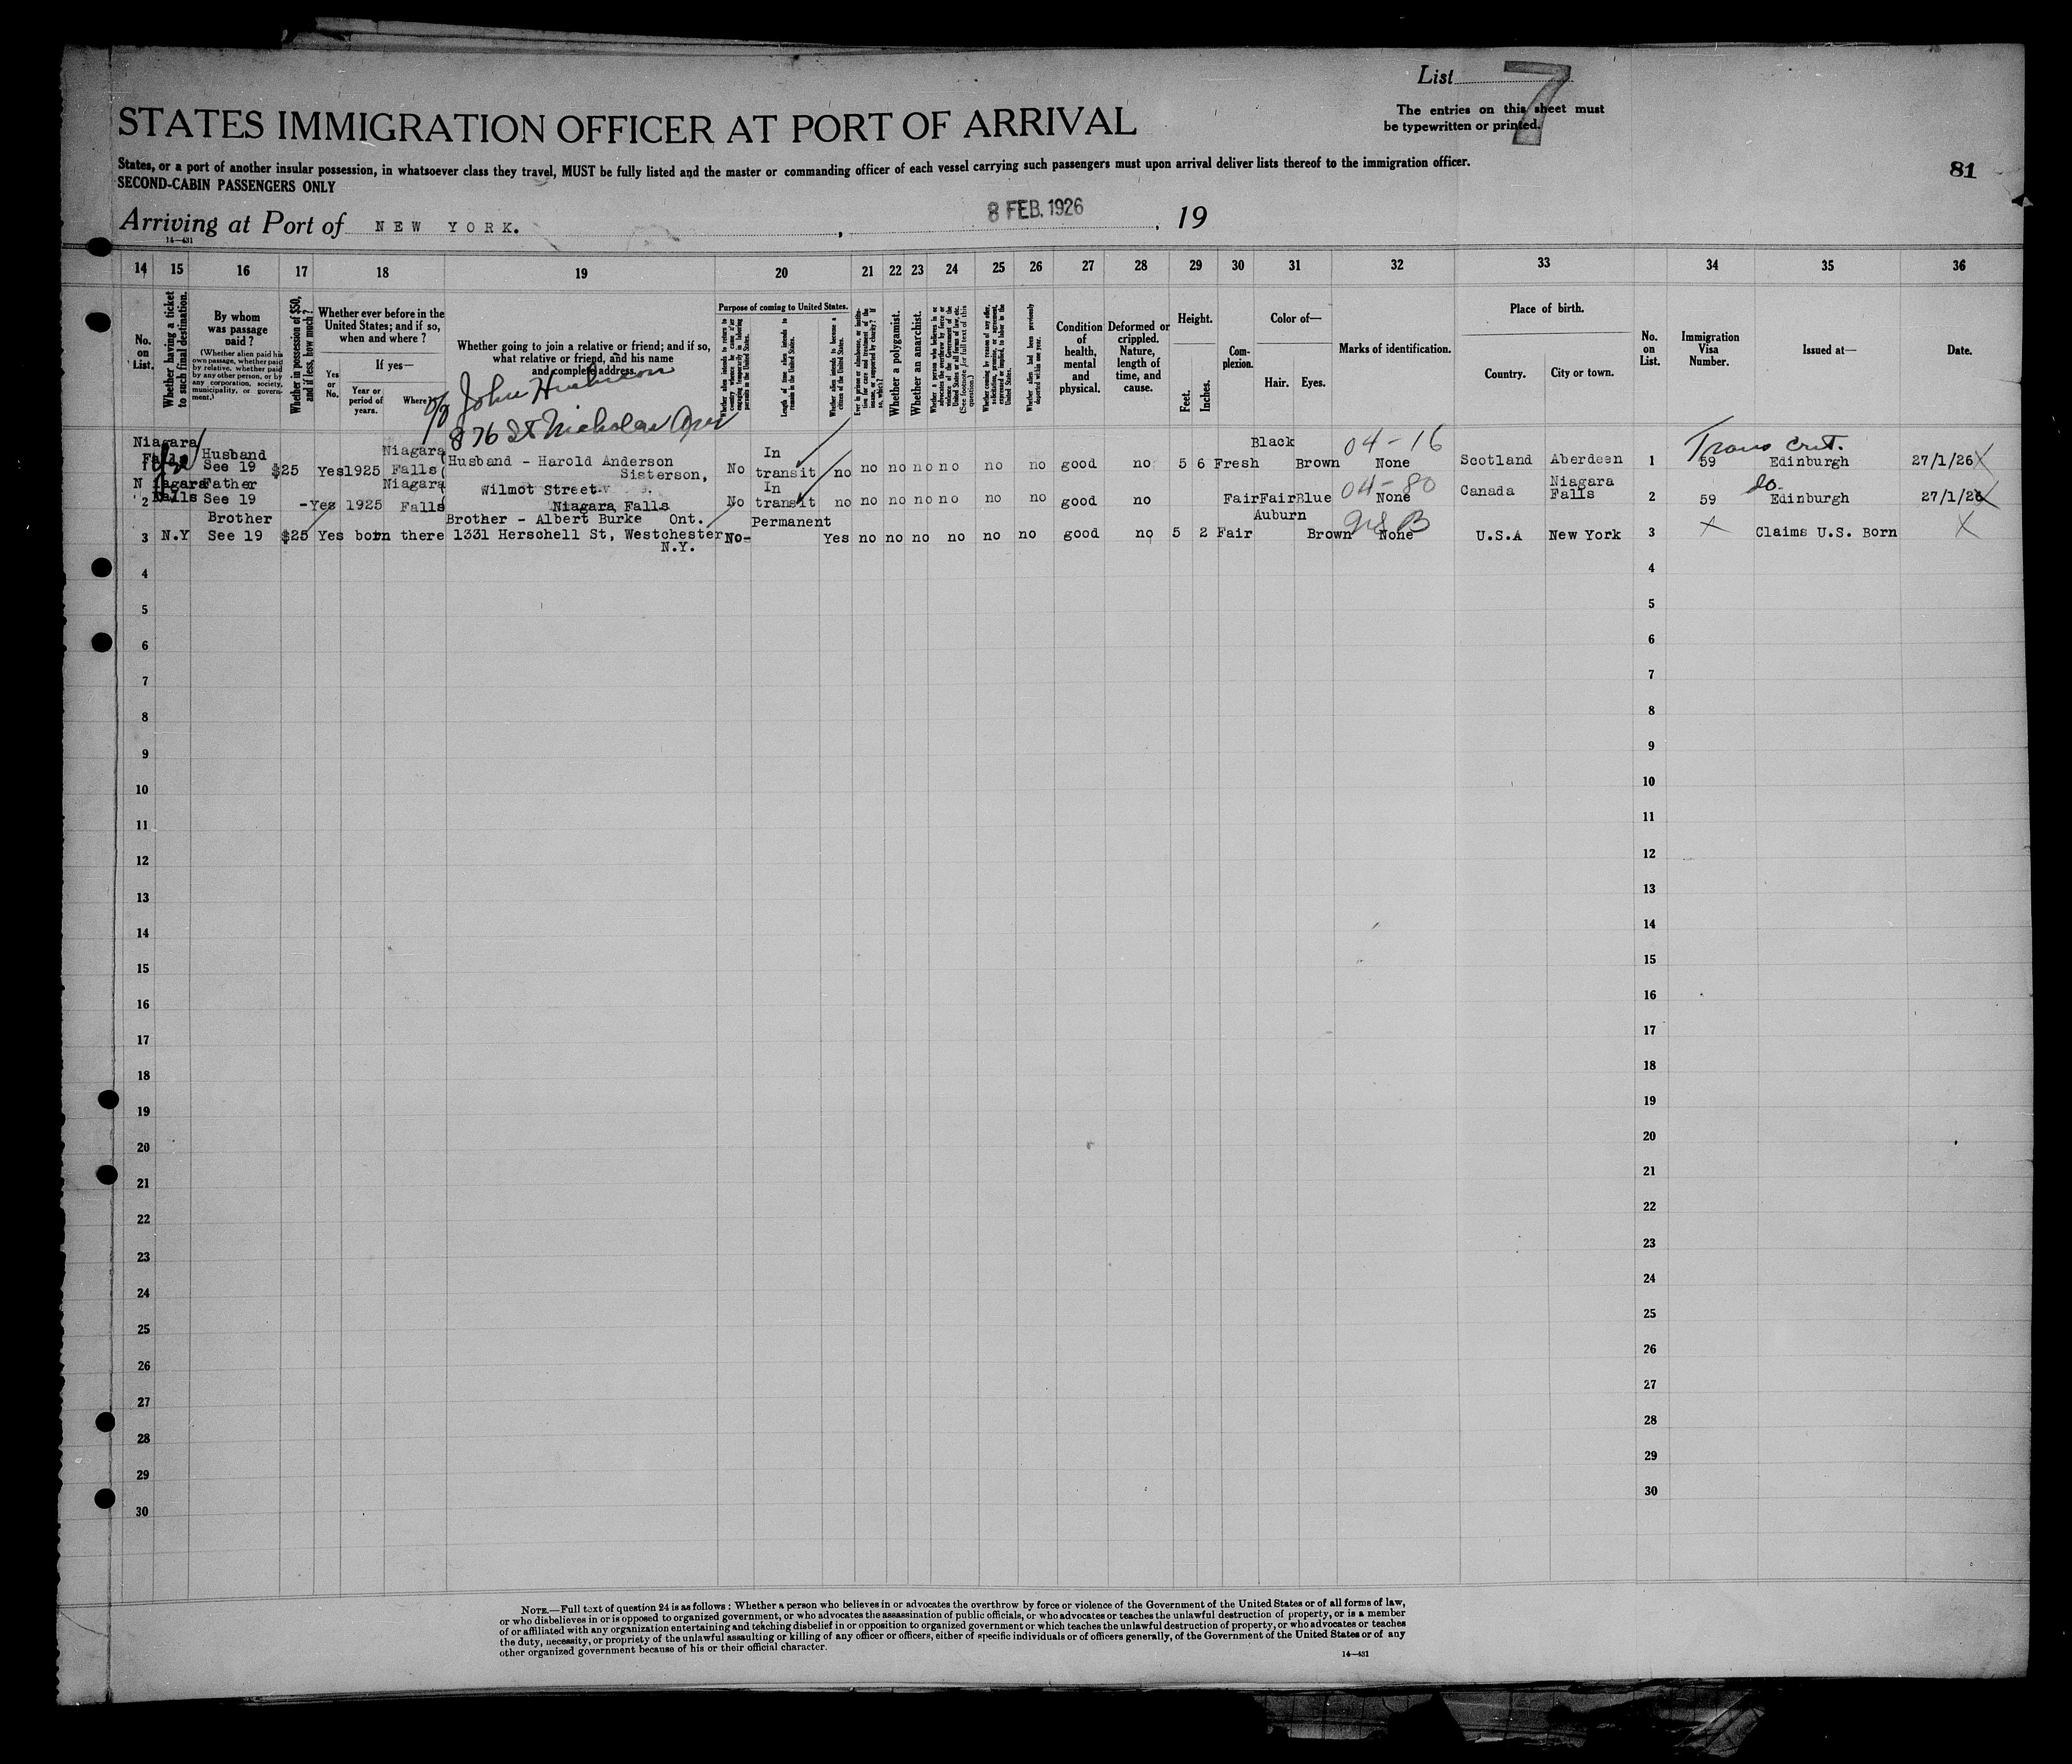 List 7
The entries on this sheet must
be typewritten or printed.
STATES IMMIGRATION OFFICER AT PORT OF ARRIVAL
81
States, or a port of another insular possession, in whatsoever class they travel, MUST be fully listed and the master or commanding officer of each vessel carrying such passengers must upon arrival deliver lists thereof to the immigration officer.
SECOND-CABIN PASSENGERS ONLY
Arriving at Port of NEW YORK. , 8 FEB. 1926 , 19
14—431
14 15 16 17 18 19 20 21 22 23 24 25 26 27 28 29 30 31 32 33 34 35 36
No. on List.
Whether having a ticket to such final destination.
By whom was passage paid?
(Whether alien paid his own passage, whether paid by relative, whether paid by any other person, or by any corporation, society, municipality, or government.)
Whether in possession of $50, and if less, how much?
Whether ever before in the United States; and if so, when and where?
If yes—
Yes or No.
Year or period of years.
Where?
Whether going to join a relative or friend; and if so, what relative or friend, and his name and complete address.
Purpose of coming to United States.
Length of time alien intends to remain in the United States.
Whether alien intends to become a citizen of the United States.
Whether a polygamist.
Whether an anarchist.
Whether alien had been previously deported within one year.
Condition of health, mental and physical.
Deformed or crippled. Nature, length of time, and cause.
Height.
Feet.
Inches.
Complexion.
Color of—
Hair.
Eyes.
Marks of identification.
Place of birth.
Country.
City or town.
No. on List.
Immigration Visa Number.
Issued at—
Date.
c/o John
876 St Nicholas Ave
Trans Cert.
1 Niagara Falls Husband See 19 $25 Yes 1925 Niagara Falls ( Husband - Harold Anderson Sisterson, No In transit no no no no no no no good no 5 6 Fresh Black Brown 04-16 None Scotland Aberdeen 1 59 Edinburgh 27/1/26 X
2 Niagara Falls Father See 19 - Yes 1925 Niagara Falls ( Wilmot Street Niagara Falls Ont. No In transit no no no no no no no good no Fair Fair Blue 04-80 None Canada Niagara Falls 2 59 do- Edinburgh 27/1/26 X
3 N.Y Brother See 19 $25 Yes born there Brother - Albert Burke 1331 Herschell St, Westchester N.Y. No- Permanent Yes no no no no no no good no 5 2 Fair Auburn Brown None U.S.A New York 3 X Claims U.S. Born X
4 4
5 5
6 6
7 7
8 8
9 9
10 10
11 11
12 12
13 13
14 14
15 15
16 16
17 17
18 18
19 19
20 20
21 21
22 22
23 23
24 24
25 25
26 26
27 27
28 28
29 29
30 30
NOTE.—Full text of question 24 is as follows: Whether a person who believes in or advocates the overthrow by force or violence of the Government of the United States or of all forms of law,
or who disbelieves in or is opposed to organized government, or who advocates the assassination of public officials, or who advocates or teaches the unlawful destruction of property, or is a member
of or affiliated with any organization entertaining and teaching disbelief in or opposition to organized government or which teaches the unlawful destruction of property, or who advocates or teaches
the duty, necessity, or propriety of the unlawful assaulting or killing of any officer or officers, either of specific individuals or of officers generally, of the Government of the United States or of any
other organized government because of his or their official character.
14—431